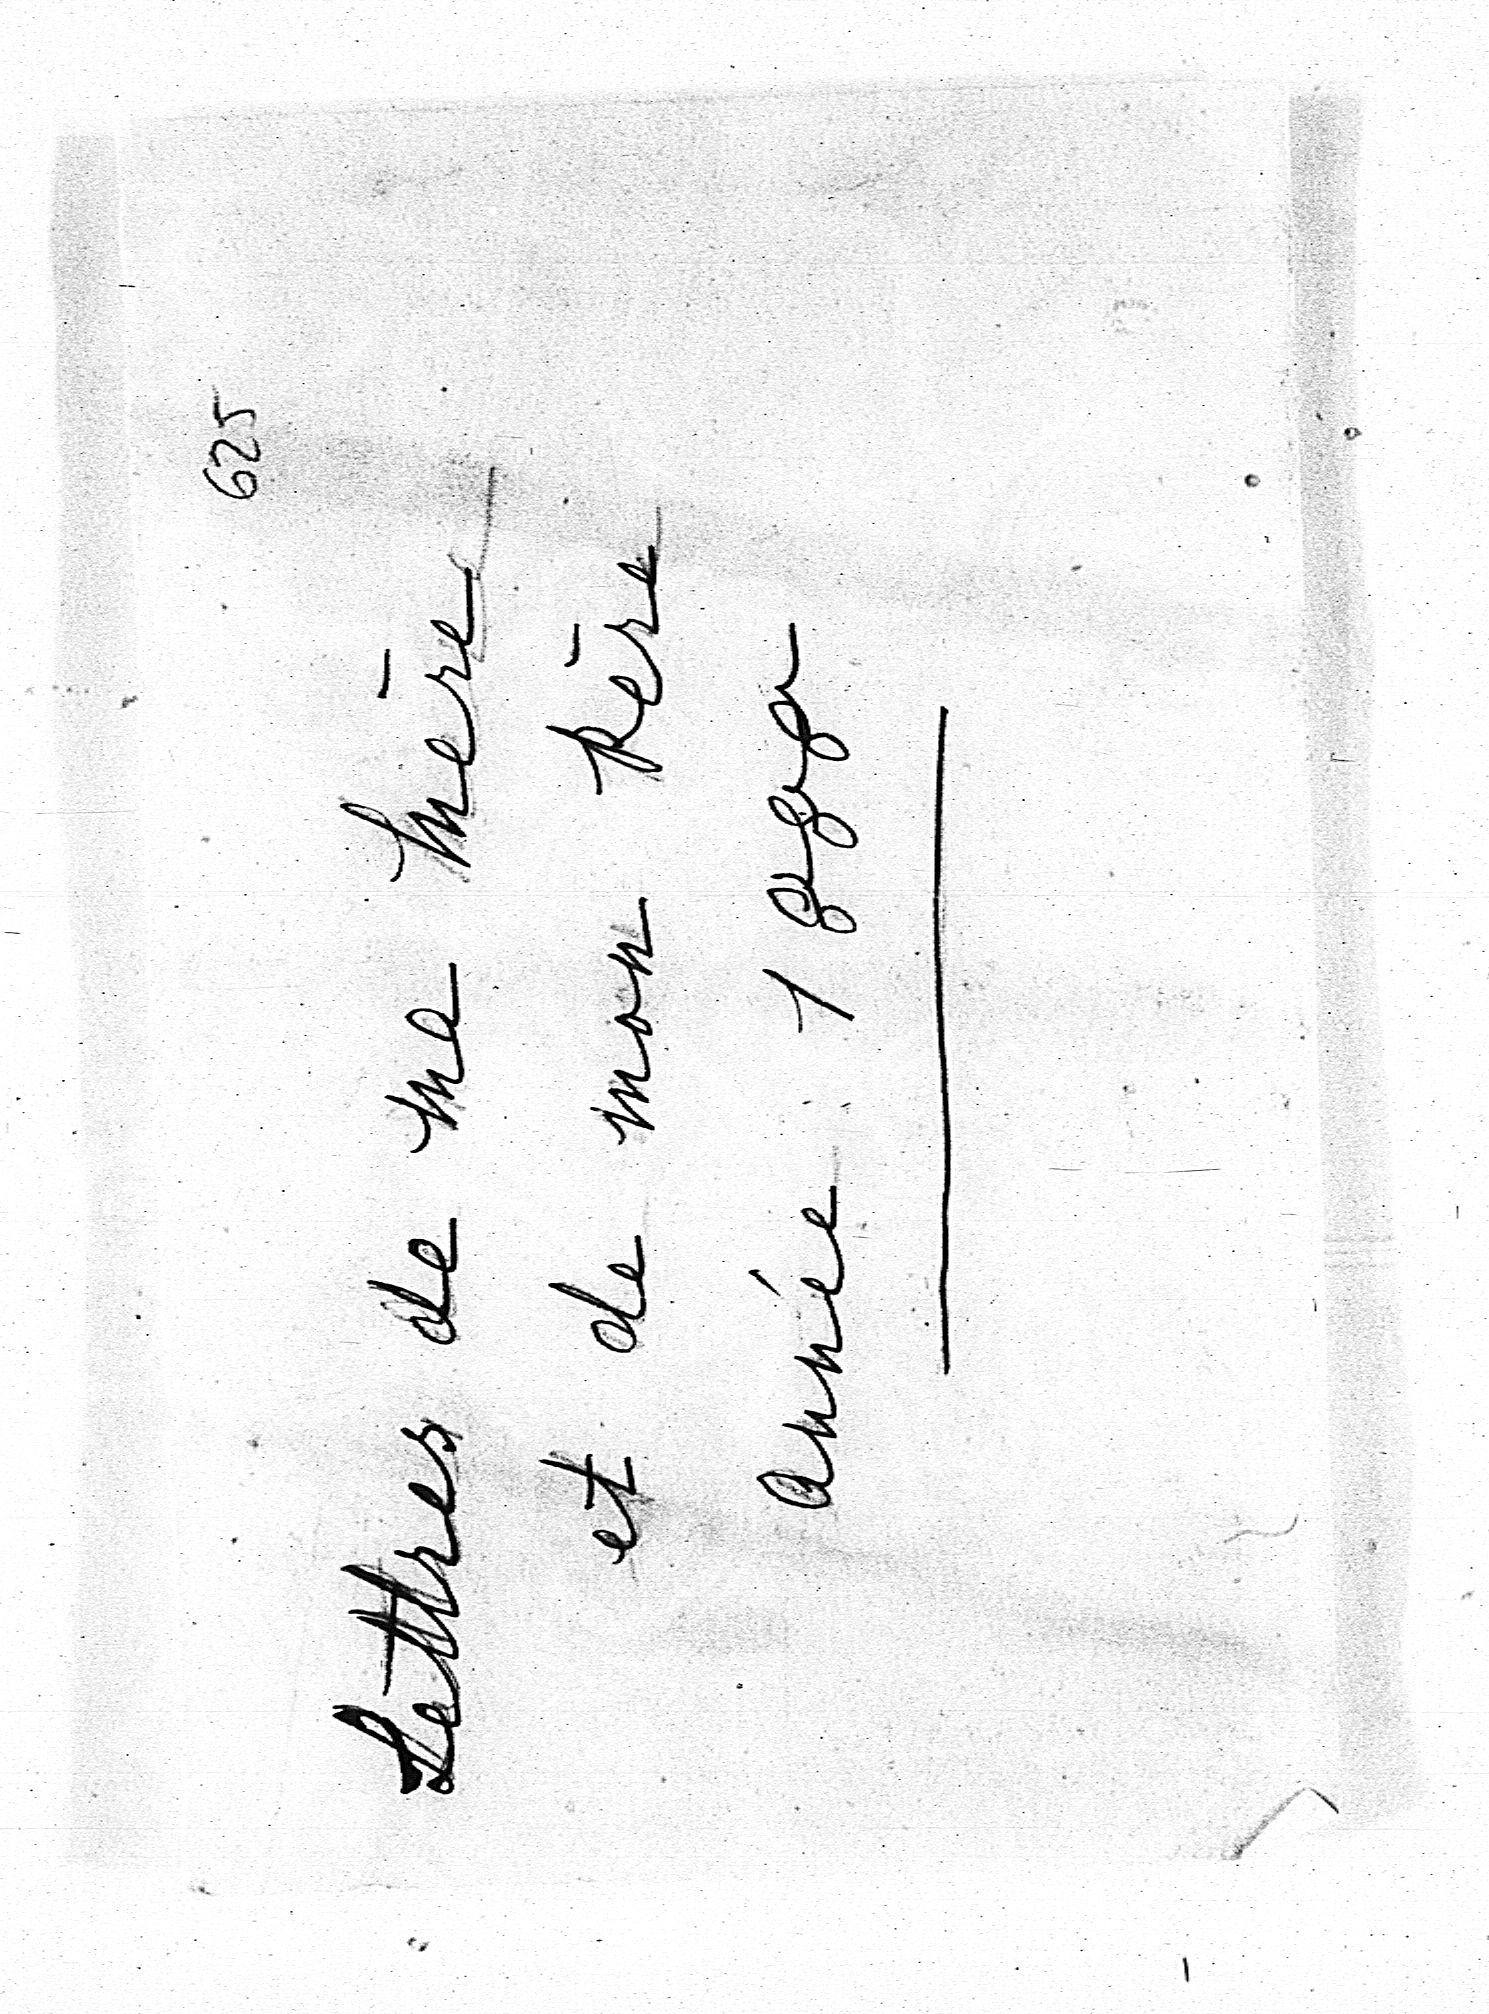 625
Lettres de ma Mère
et de mon Père
année 1888